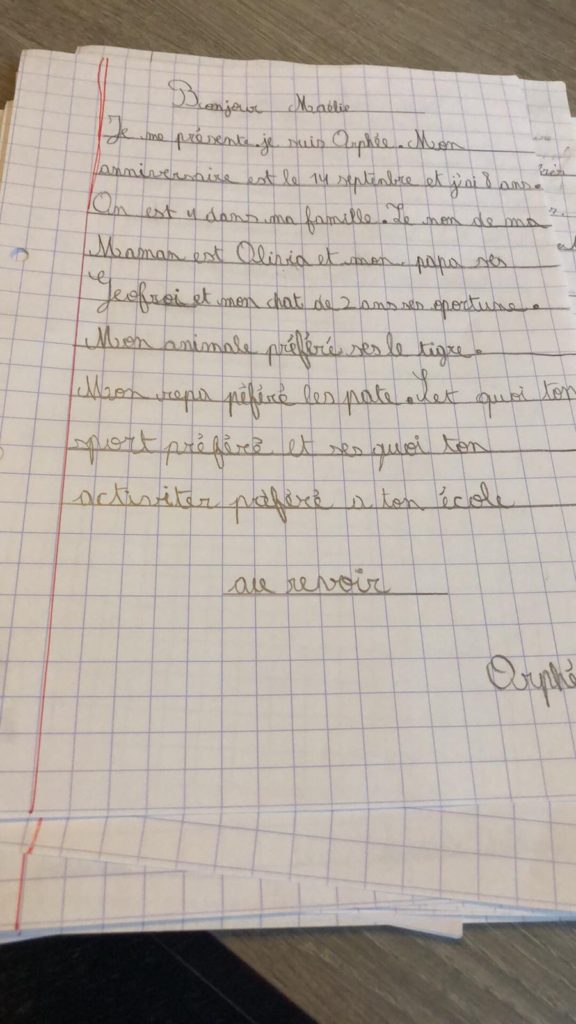 Bonjour Maëlie
Je me présente je suis Orphée. Mon
anniversaire est le 14 septenbre et j'ai 8 ans.
On est 4 dans ma famille. Le non de ma
Maman est Olivia et mon papa ses
Geofroi et mon chat de 2 ans ses oportune.
Mon animale préféré ses le tigre.
Mon repa péféré les pate. Set quoi ton
sport préféré et ses quoi ton
activiter préféré a ton école
au revoir
Orphé